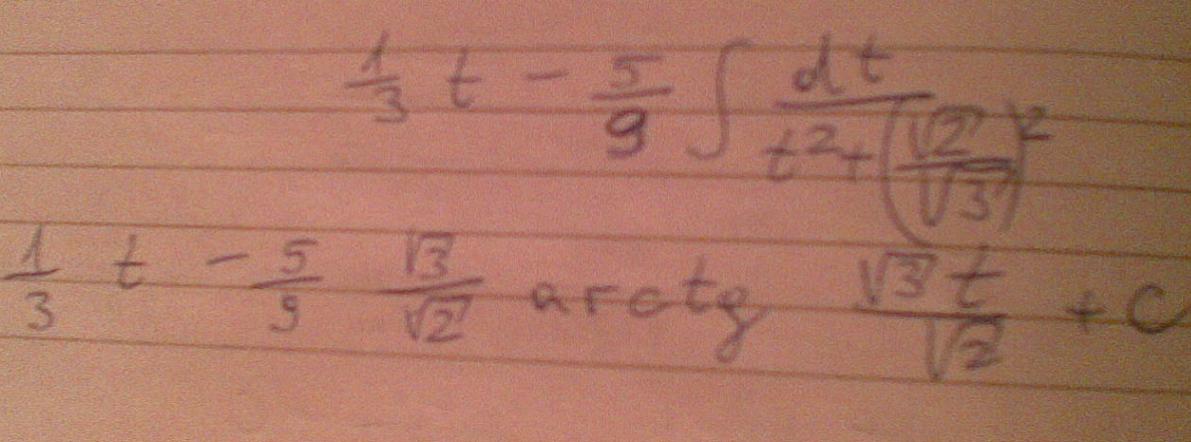 1/3 t - 5/9 ∫ dt/(t²+(√2/√3)²)
1/3 t - 5/9 √3/√2 arctg √3 t/√2 + C